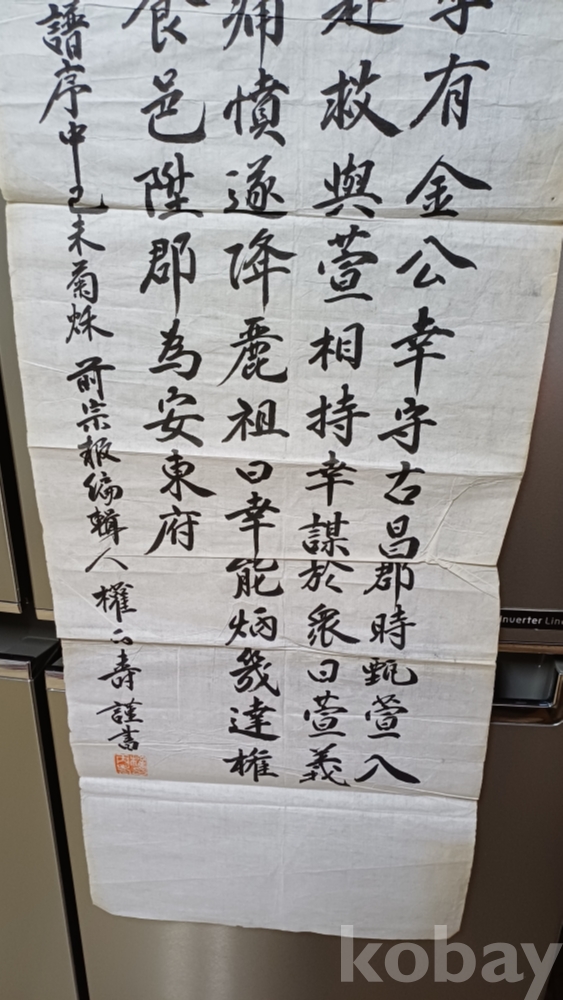 有金公幸守古昌郡時甄萱入
赴救與萱相持幸謀於衆曰萱義
痛憤遂降麗祖曰幸能炳幾達權
食邑陞郡為安東府
譜序中 己未菊秌 前宗報編輯人 權 壽謹書
Inverter
kobay